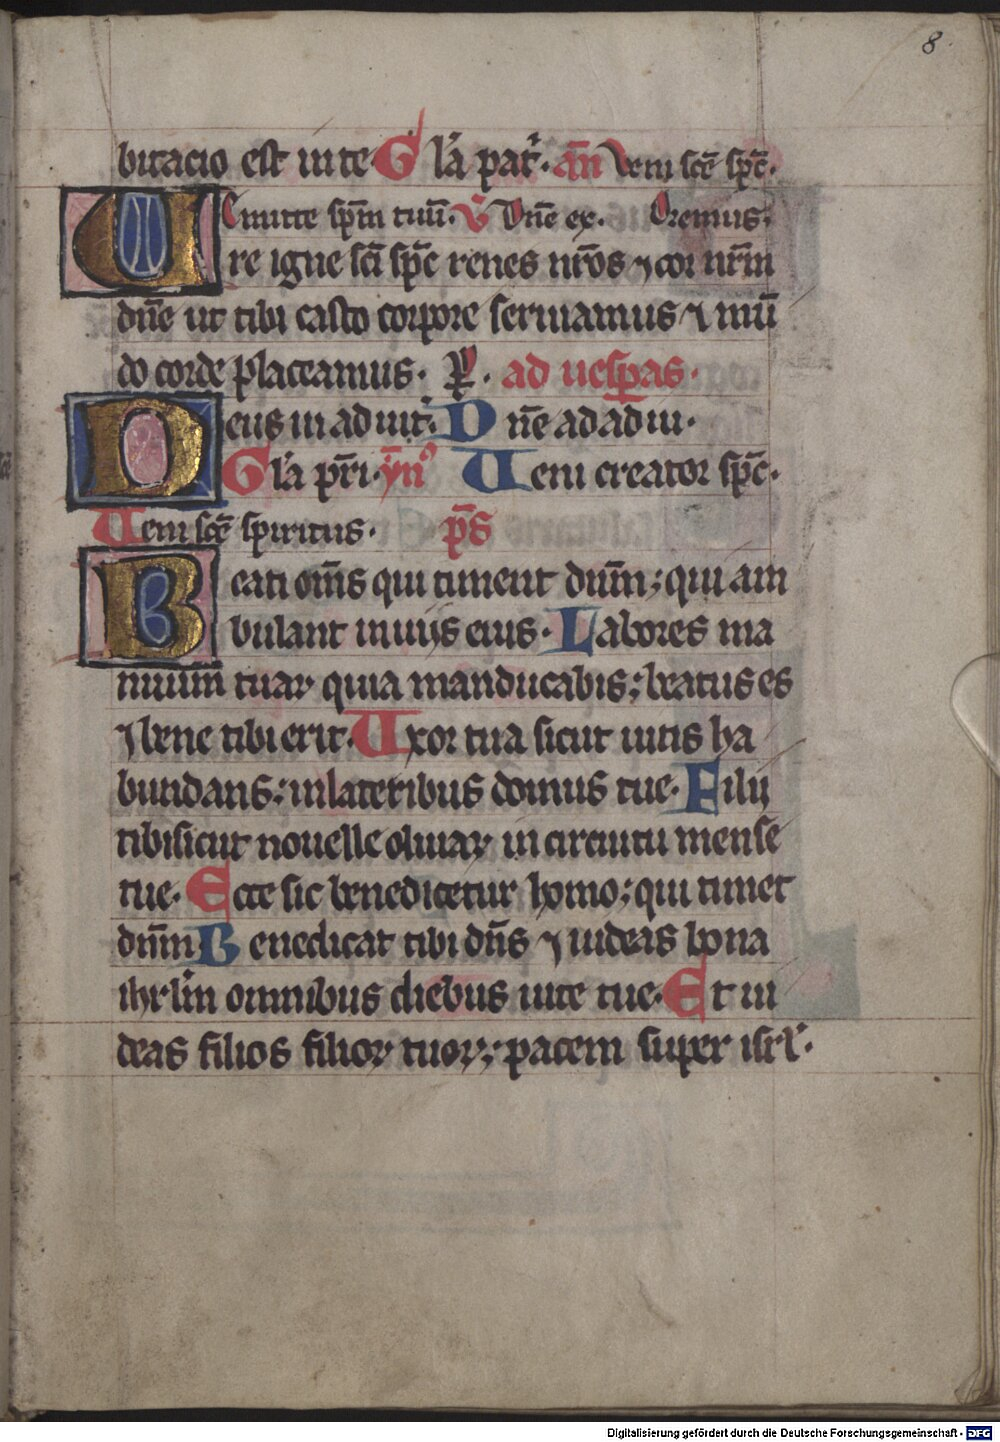 8
bitacio est in te Gl'a pat'. an Veni scē spc̄.
Emitte spm̄ tuū. V Dn̄e ex. Oremus.
Ure igne sc̄i spc̄ renes nr̄os ⁊ cor nr̄m
dn̄e ut tibi casto corpore seruiamus ⁊ mū
do corde placeamus. P. ad uesꝑas.
Deus in adiuit'. Dn̄e ad adiu.
Gl'a pr̄i. ymō Veni creator spc̄.
Veni scē spiritus. ps̄
Beati om̄s qui timent dn̄m; qui am
bulant in uijs eius. Labores ma
nuum tuaꝝ quia manducabis; beatus es
⁊ bene tibi erit. Uxor tua sicut uitis ha
bundans; in lateribus domus tue. Filij
tibi sicut nouelle oliuaꝝ in circuitu mense
tue. Ecce sic benedicetur homo; qui timet
dn̄m Benedicat tibi dn̄s ⁊ uideas bona
ihrl'm omnibus diebus uite tue. Et ui
deas filios filioꝝ tuoꝝ; pacem super isrl'.
Digitalisierung gefördert durch die Deutsche Forschungsgemeinschaft - DFG